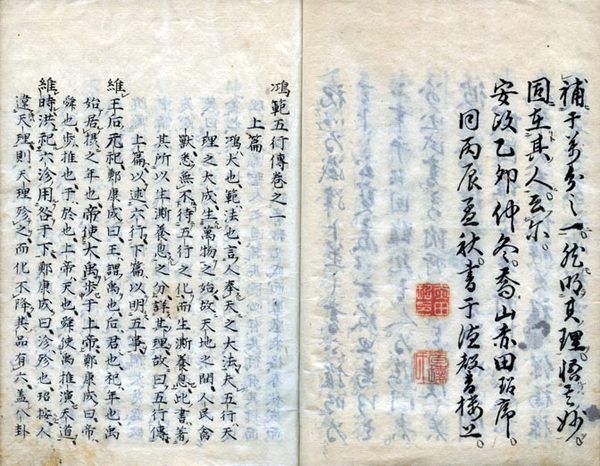 補于萬分之一。然明其理悟其妙。
固在其人云尓。
安政乙卯仲冬。喬山赤田珆序。
同丙辰孟秋書于徳教書樓上。
鴻範五行傳卷之一
上篇
鴻大也、範法也、言人奉天之大法、夫五行天
理之大成、生萬物之始、故天地之間、人民禽
獸悉無不待五行之化而生漸養息、此書著
其所以生漸養息之分、詳其理、故曰五行傳、
上篇以述六行、下篇以明五事、
維王后元祀、鄭康成曰、王謂禹也、后君也、祀年也、禹
始居攝之年也、帝使大禹步于上帝、鄭康成曰、帝
舜也、步推也、于於也、上帝天也、舜使禹推演天道、
維時洪祀六沴用咎于下、鄭康成曰、沴殄也、珆按、人
違天理則天理殄之、而化不降、其品有六、蓋八卦